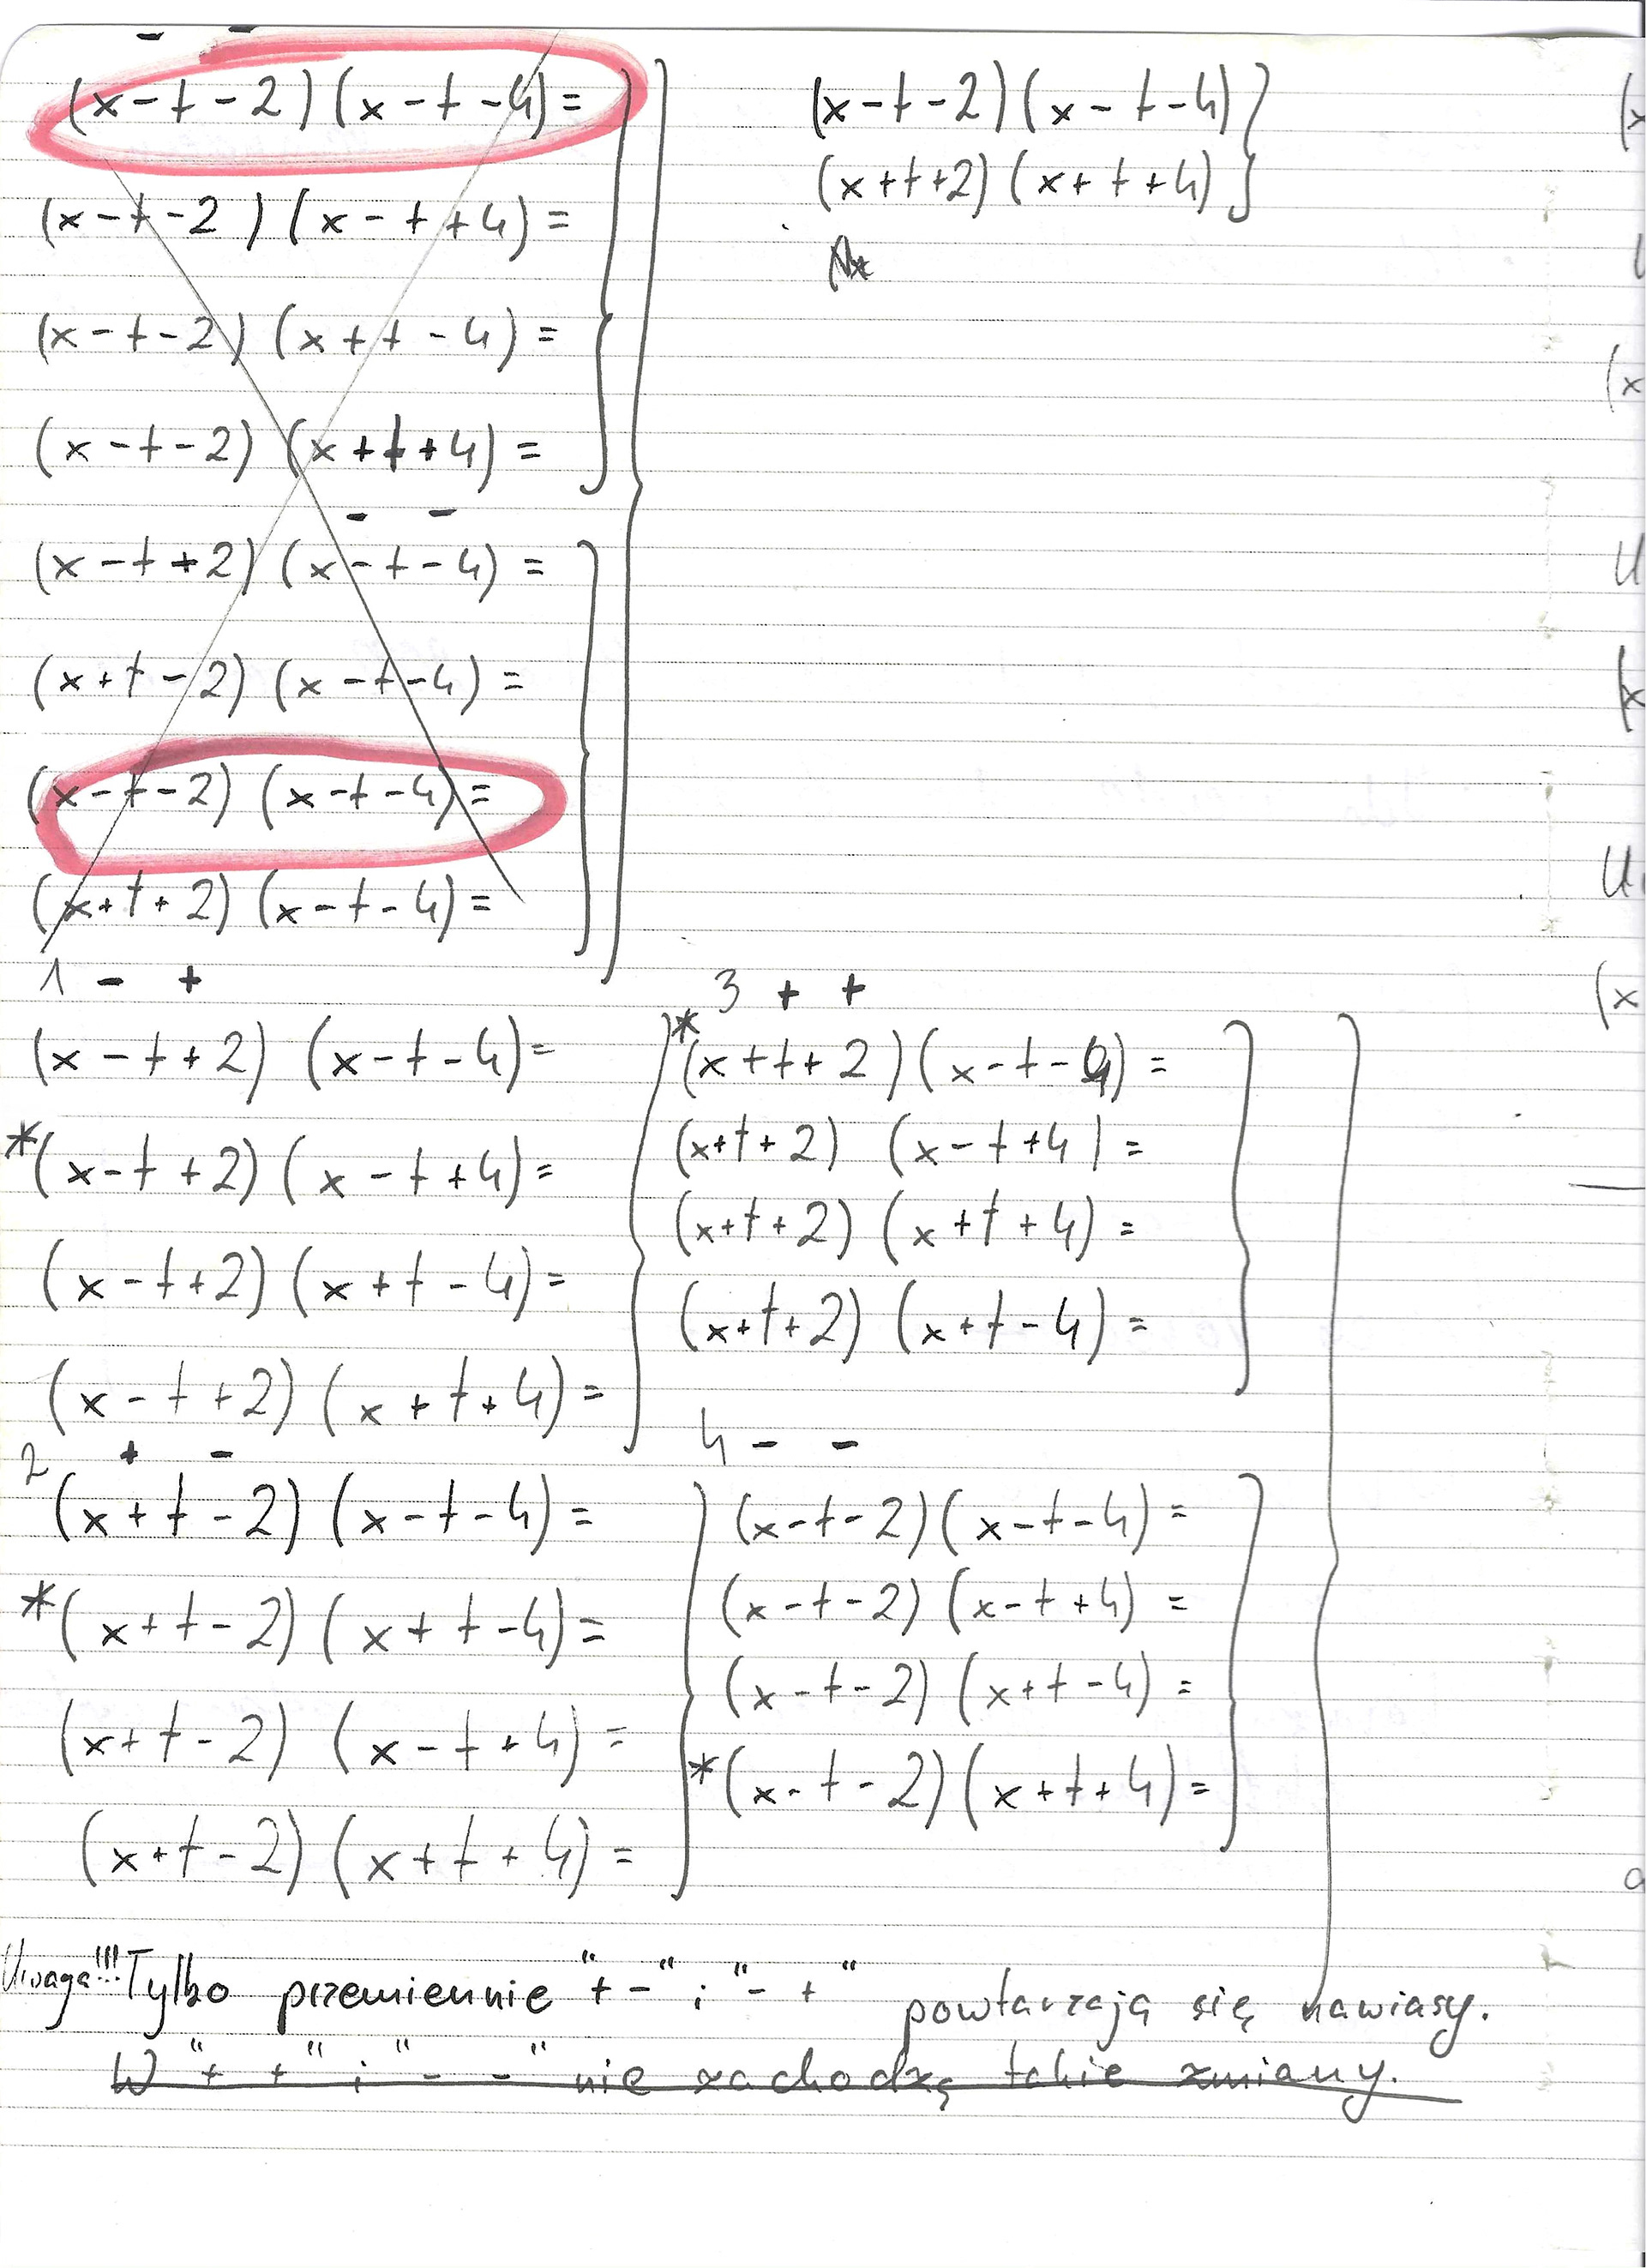 - -
(x-t-2)(x-t-4)=
(x-t-2)(x-t+4)=
(x-t-2)(x+t-4)=
(x-t-2)(x+t+4)=
- -
(x-t+2)(x-t-4)=
(x+t-2)(x-t-4)=
(x-t-2)(x-t-4)=
(x+t+2)(x-t-4)=
(x-t-2)(x-t-4)
(x+t+2)(x+t+4)
1 - +
(x-t+2)(x-t-4)=
*(x-t+2)(x-t+4)=
(x-t+2)(x+t-4)=
(x-t+2)(x+t+4)=
2 + -
(x+t-2)(x-t-4)=
*(x+t-2)(x+t-4)=
(x+t-2)(x-t+4)=
(x+t-2)(x+t+4)=
3 + +
*(x+t+2)(x-t-4)=
(x+t+2)(x-t+4)=
(x+t+2)(x+t+4)=
(x+t+2)(x+t-4)=
4 - -
(x-t-2)(x-t-4)=
(x-t-2)(x-t+4)=
(x-t-2)(x+t-4)=
*(x-t-2)(x+t+4)=
Uwaga!!! Tylko przemiennie "+ -" i "- +" powtarzają się nawiasy.
W "+ +" i "- -" nie zachodzą takie zmiany.